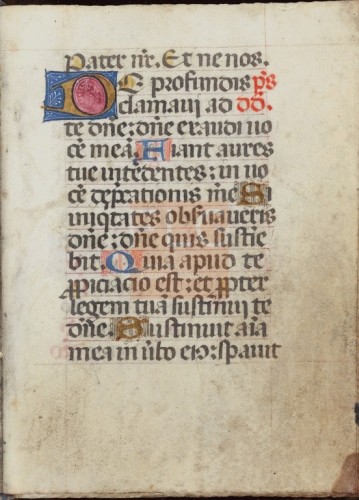 Pater nr̄. Et ne nos.
De profundis p̄s
clamaui ad dd̄.
te dn̄e: dn̄e exaudi uo
cē meā. Fiant aures
tue intēdentes: in uo
cē dep̄cationis mee Si
iniq̄tates obs̄uaueris
dn̄e: dn̄e quis sustie
bit Quia apud te
p̄piciacio est: et p̄pter
legem tuā sustinui te
dn̄e Sustinuit aīa
mea in ūbo eiꝰ: spauit